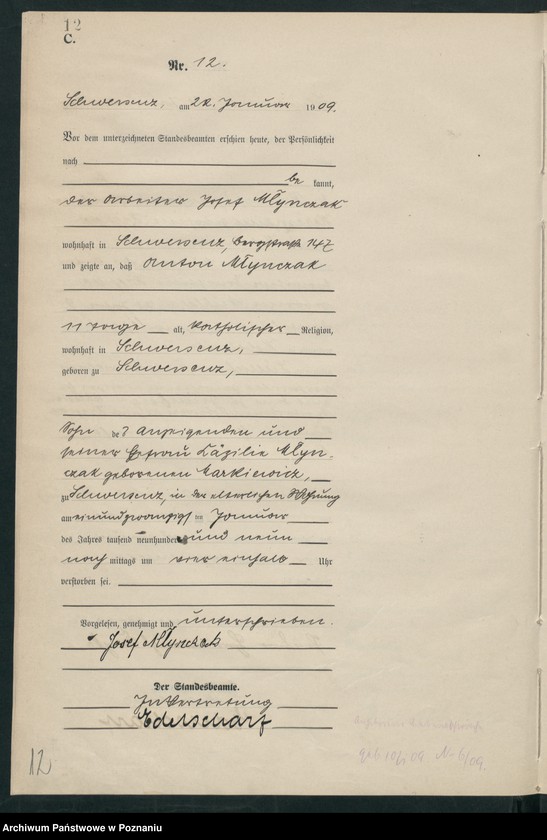 12
C.
Nr. 12.
Schwersenz, am 22. Januar 1909.
Vor dem unterzeichneten Standesbeamten erschien heute, der Persönlichkeit
nach
be kannt,
der Arbeiter Josef Młynczak
wohnhaft in Schwersenz, Bergstraße 147
und zeigte an, daß Anton Młynczak
11 Tage alt, katholischer Religion,
wohnhaft in Schwersenz,
geboren zu Schwersenz,
Sohn des Anzeigenden und
seiner Ehefrau Cäzilie Młyn-
czak geborenen Markiewicz,
zu Schwersenz, in der elterlichen Wohnung
am einundzwanzigsten Januar
des Jahres tausend neunhundert und neun
nach mittags um vier einhalb Uhr
verstorben sei.
Vorgelesen, genehmigt und unterschrieben.
Josef Młynczak
Der Standesbeamte.
In Vertretung
Ederscharf
geb. 10/1 09 N 6/09.
12
Archiwum Państwowe w Poznaniu